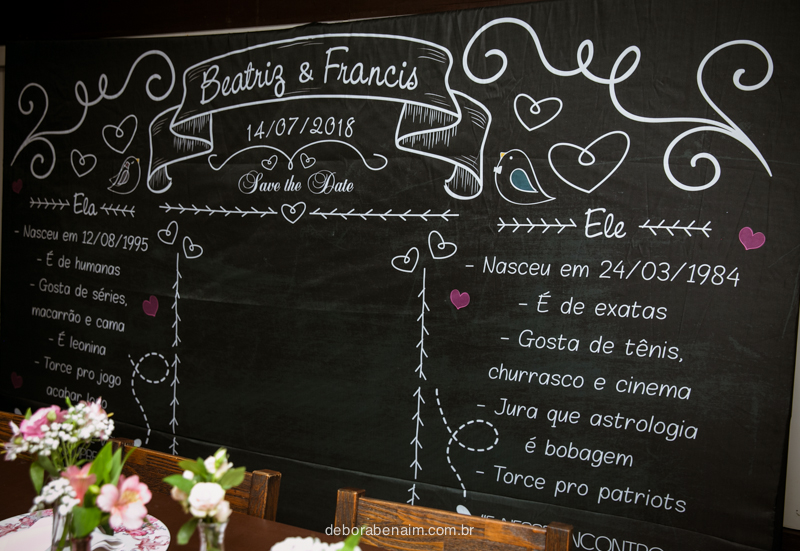 Beatriz & Francis
14/07/2018
Save the Date
Ela
- Nasceu em 12/08/1995
- É de humanas
- Gosta de séries,
macarrão e cama
- É leonina
- Torce pro jogo
acabar logo
Ele
- Nasceu em 24/03/1984
- É de exatas
- Gosta de tênis,
churrasco e cinema
- Jura que astrologia
é bobagem
- Torce pro patriots
deborabenaim.com.br